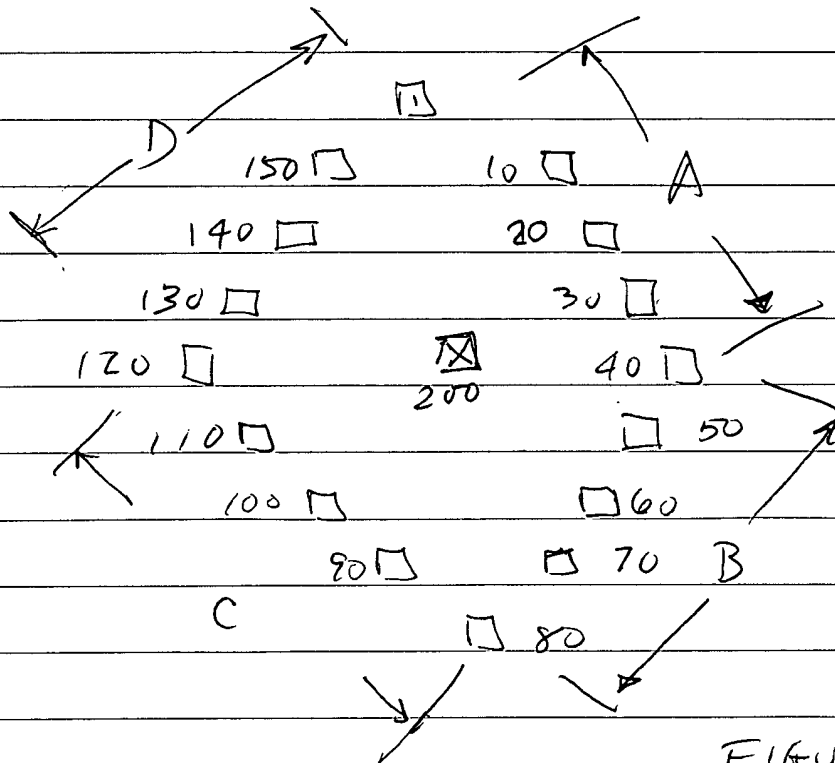 1
D
150 10 A
140 20
130 30
120 200 40
110 50
100 60
90 70 B
C 80